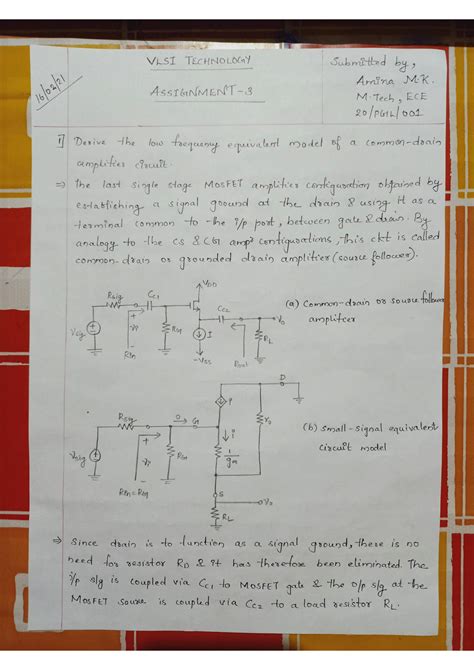 16/02/21
VLSI TECHNOLOGY
ASSIGNMENT-3
Submitted by,
Amina M.K.
M.Tech, ECE
20/PGIL/001
1] Derive the low frequency equivalent model of a common-drain
amplifier circuit.
⇒ The last single stage MOSFET amplifier configuration obtained by
establishing a signal ground at the drain & using it as a
terminal common to the i/p port, between gate & drain. By
analogy to the CS & CG ampr configurations, this ckt is called
common-drain or grounded drain amplifier (source follower).
VDD
Rsig
CC1
CC2
Vo
Vsig
+
Vi
-
RG
I
RL
Rin
-VSS
Rout
(a) Common-drain or source follower
amplifier
D
i
Rsig
0
G
ro
Vsig
+
Vi
-
RG
i
1/gm
Rin=RG
S
Vo
RL
(b) small-signal equivalent
circuit model
⇒ Since drain is to function as a signal ground, there is no
need for resistor RD & it has therefore been eliminated. The
i/p sig is coupled via CC1 to MOSFET gate & the o/p sig at the
MOSFET source is coupled via CC2 to a load resistor RL.